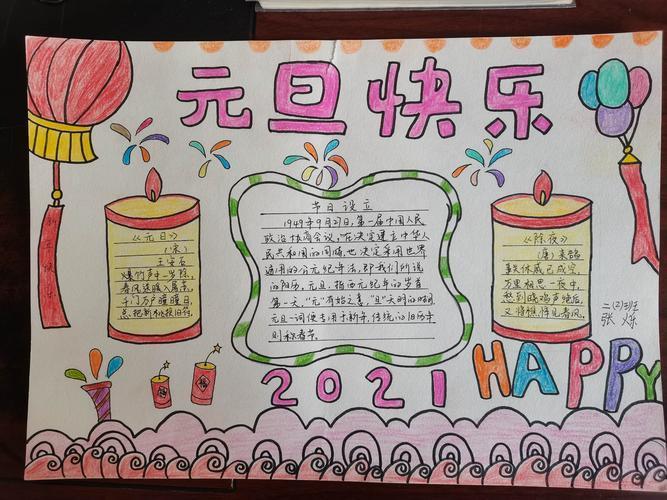 元旦快乐
新年快乐
《元日》
（宋）
王安石
爆竹声中一岁除，
春风送暖入屠苏。
千门万户曈曈日，
总把新桃换旧符。
节日设立
1949年9月27日，第一届中国人民
政治协商会议，在决定建立中华人
民共和国的同时，也决定采用世界
通用的公元纪年法，即我们所说
的阳历，元旦，指西元纪年的岁首
第一天，"元"有始之意，"旦"天明的时间
元旦一词便专用于新年，传统的旧历年
则称春节。
《除夜》
（唐）来鹄
事关休戚已成空，
万里相思一夜中。
愁到晓鸡声绝后，
又将憔悴见春风。
二（2）班
张烁
福
2021 HAPPY